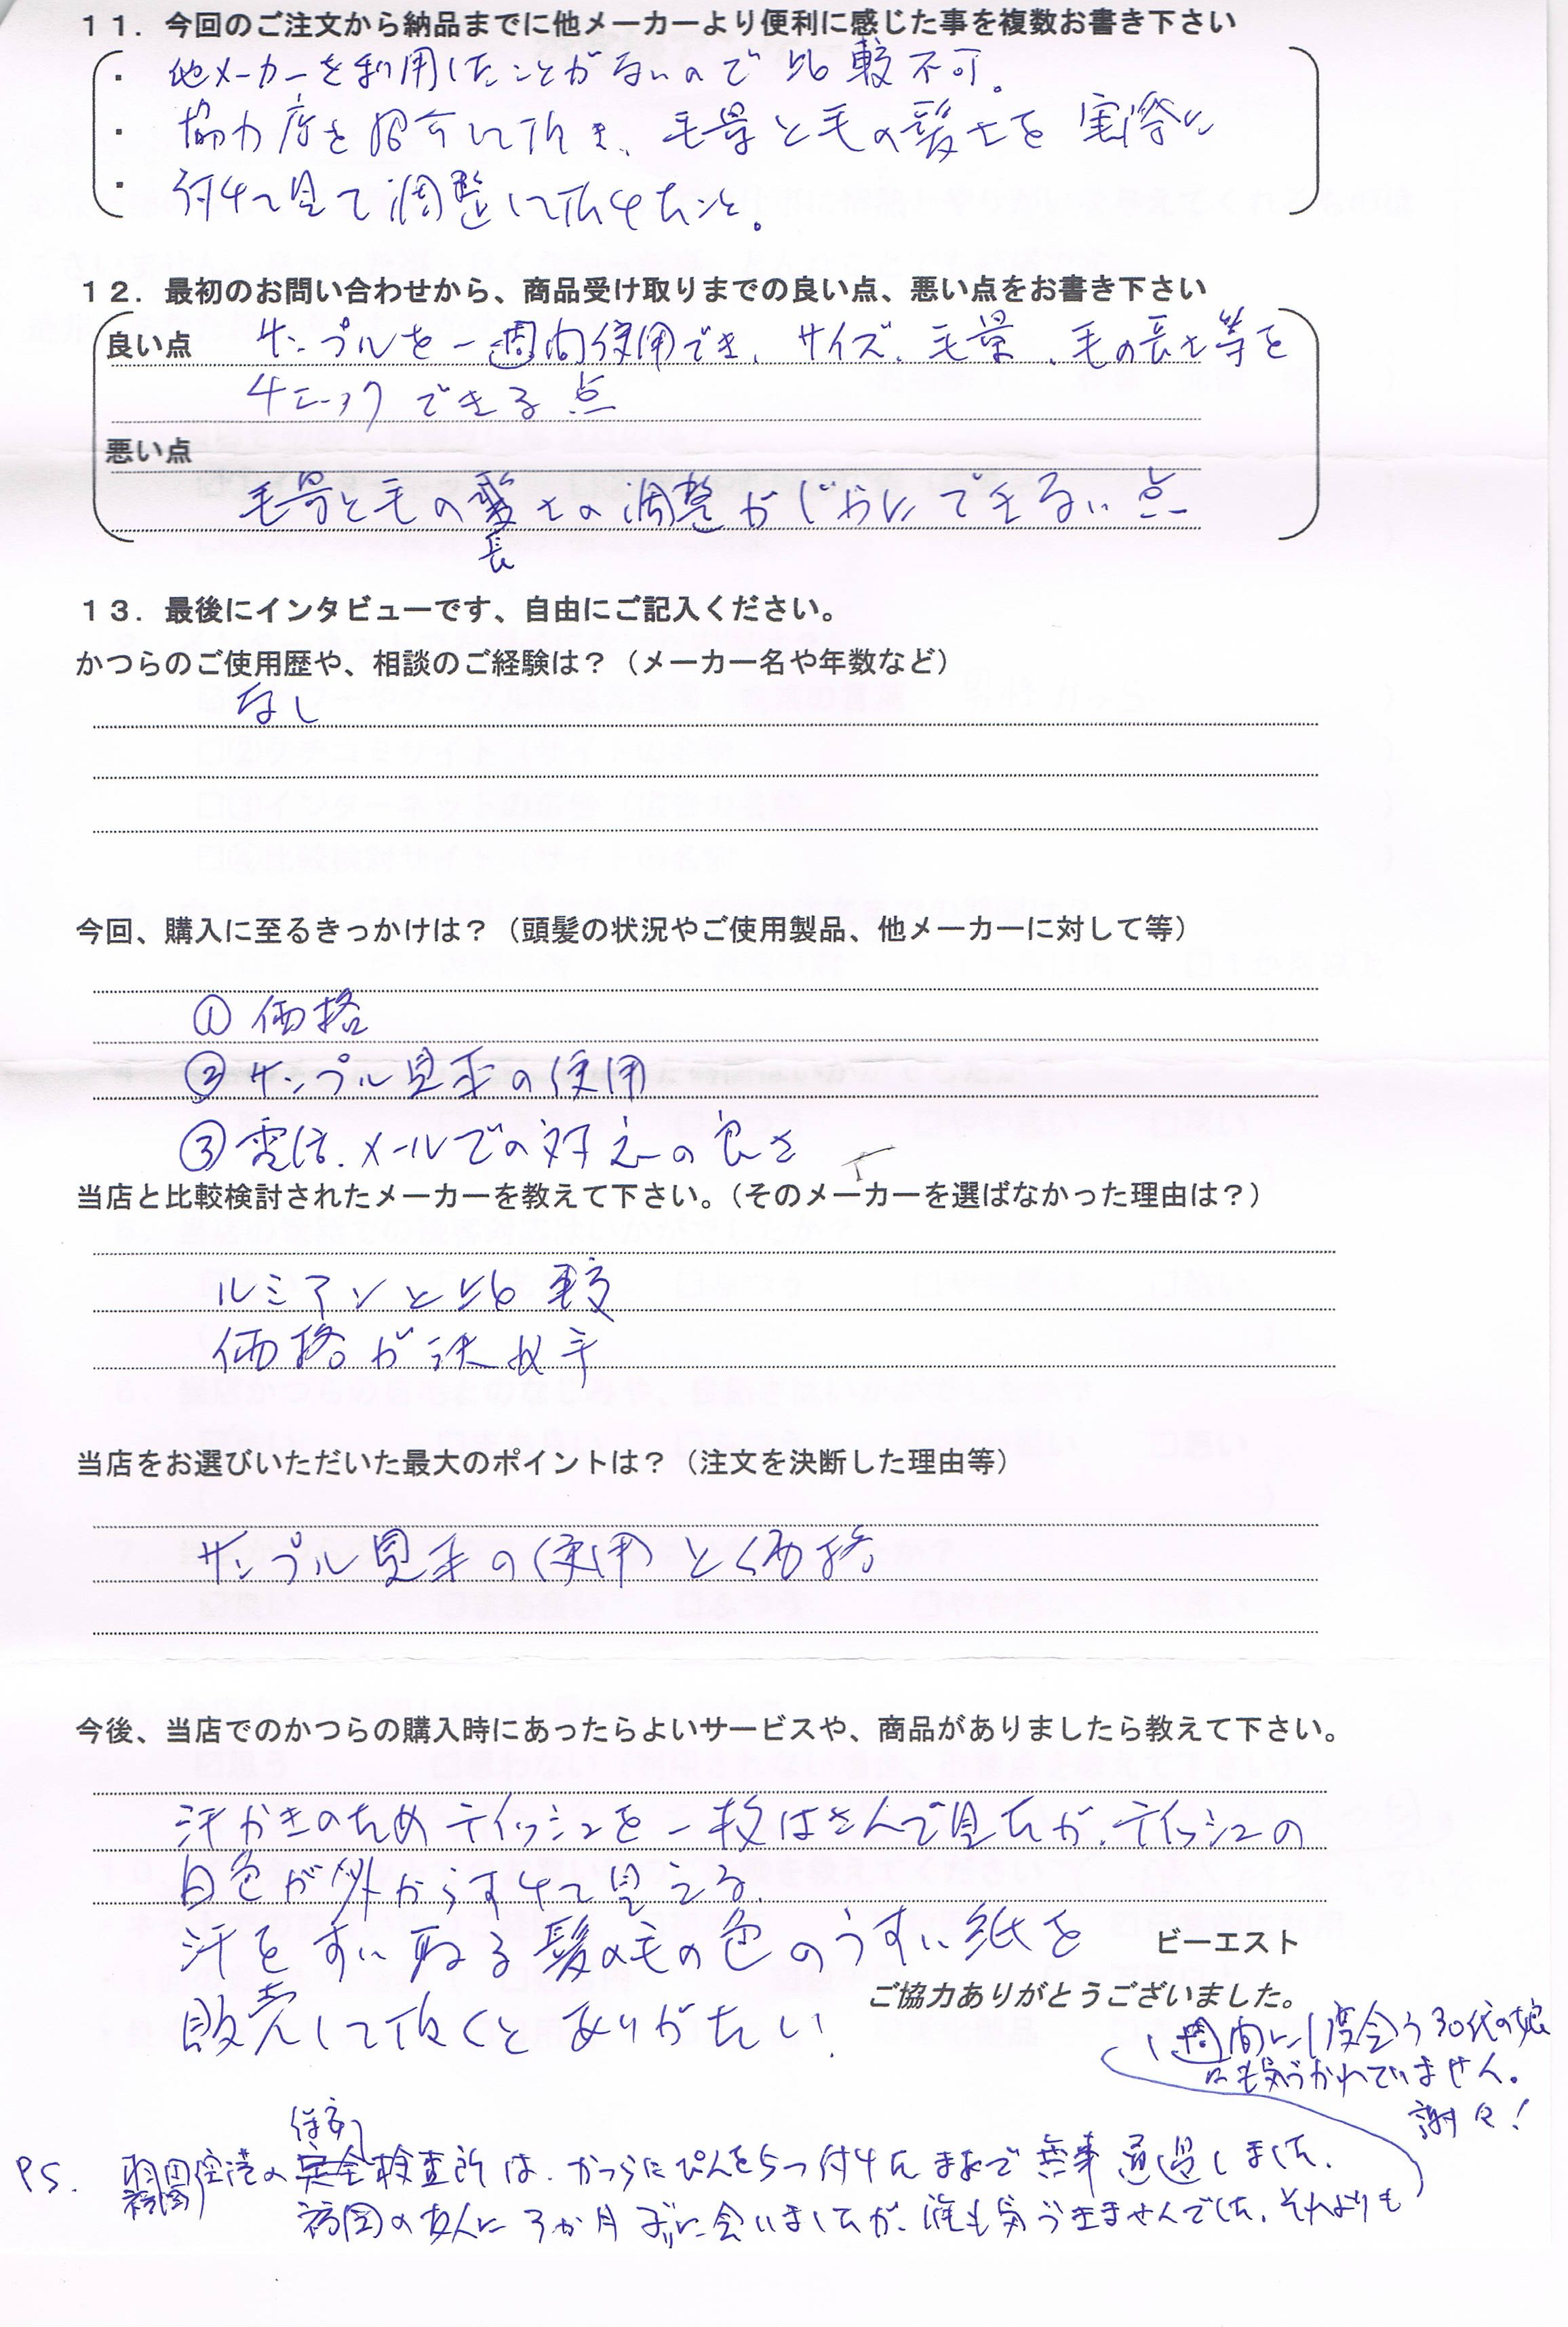 １１．今回のご注文から納品までに他メーカーより便利に感じた事を複数お書き下さい
・ 他メーカーを利用したことがないので比較不可。
・ 協力店を紹介して頂き、毛量と毛の髪さを実際に
・ 付けて見て調整して頂けたこと。
１２．最初のお問い合わせから、商品受け取りまでの良い点、悪い点をお書き下さい
良い点 サンプルを一週間使用でき、サイズ、毛量、毛の長さ等を
チェックできる点
悪い点
毛量と毛の髪さの調整がじかにできない点
長
１３．最後にインタビューです、自由にご記入ください。
かつらのご使用歴や、相談のご経験は？（メーカー名や年数など）
なし
今回、購入に至るきっかけは？（頭髪の状況やご使用製品、他メーカーに対して等）
① 価格
② サンプル見本の使用
③ 電話、メールでの対応の良さ
当店と比較検討されたメーカーを教えて下さい。（そのメーカーを選ばなかった理由は？）
ルミアンと比較
価格が決め手
当店をお選びいただいた最大のポイントは？（注文を決断した理由等）
サンプル見本の使用と価格
今後、当店でのかつらの購入時にあったらよいサービスや、商品がありましたら教えて下さい。
汗かきのためティッシュを一枚はさんで見たが、ティッシュの
白色が外からすけて見える。
汗をすい取る髪の毛の色のうすい紙を
販売して頂くとありがたい。
ビーエスト
ご協力ありがとうございました。
1週間に1度会う30代の娘
にも気づかれていません。
謝々！
保安
PS. 羽田空港の検査所は、かつらにぴんを5つ付けたままで無事通過しました。
福岡
福岡の友人に3か月ぶりに会いましたが、誰も気づきませんでした。それよりも